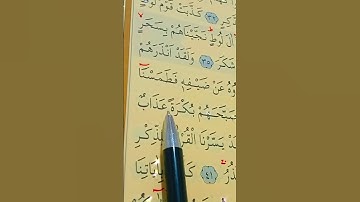 كِرٍ ﴿٣٢﴾ كَذَّبَتْ قَوْمُ لُوطٍ
اٰلَ لُوطٍ نَجَّيْنَاهُمْ بِسَحَرٍ
شَكَرَ ﴿٣٥﴾ وَلَقَدْ اَنْذَرَهُمْ
وهُ عَنْ ضَيْفِهٖ فَطَمَسْنَا
صَبَّحَهُمْ بُكْرَةً عَذَابٌ
دْ يَسَّرْنَا الْقُرْ لِلذِّكْرِ
ذُرُ ﴿٤١﴾ كَذَّ بِاٰيَاتِنَا